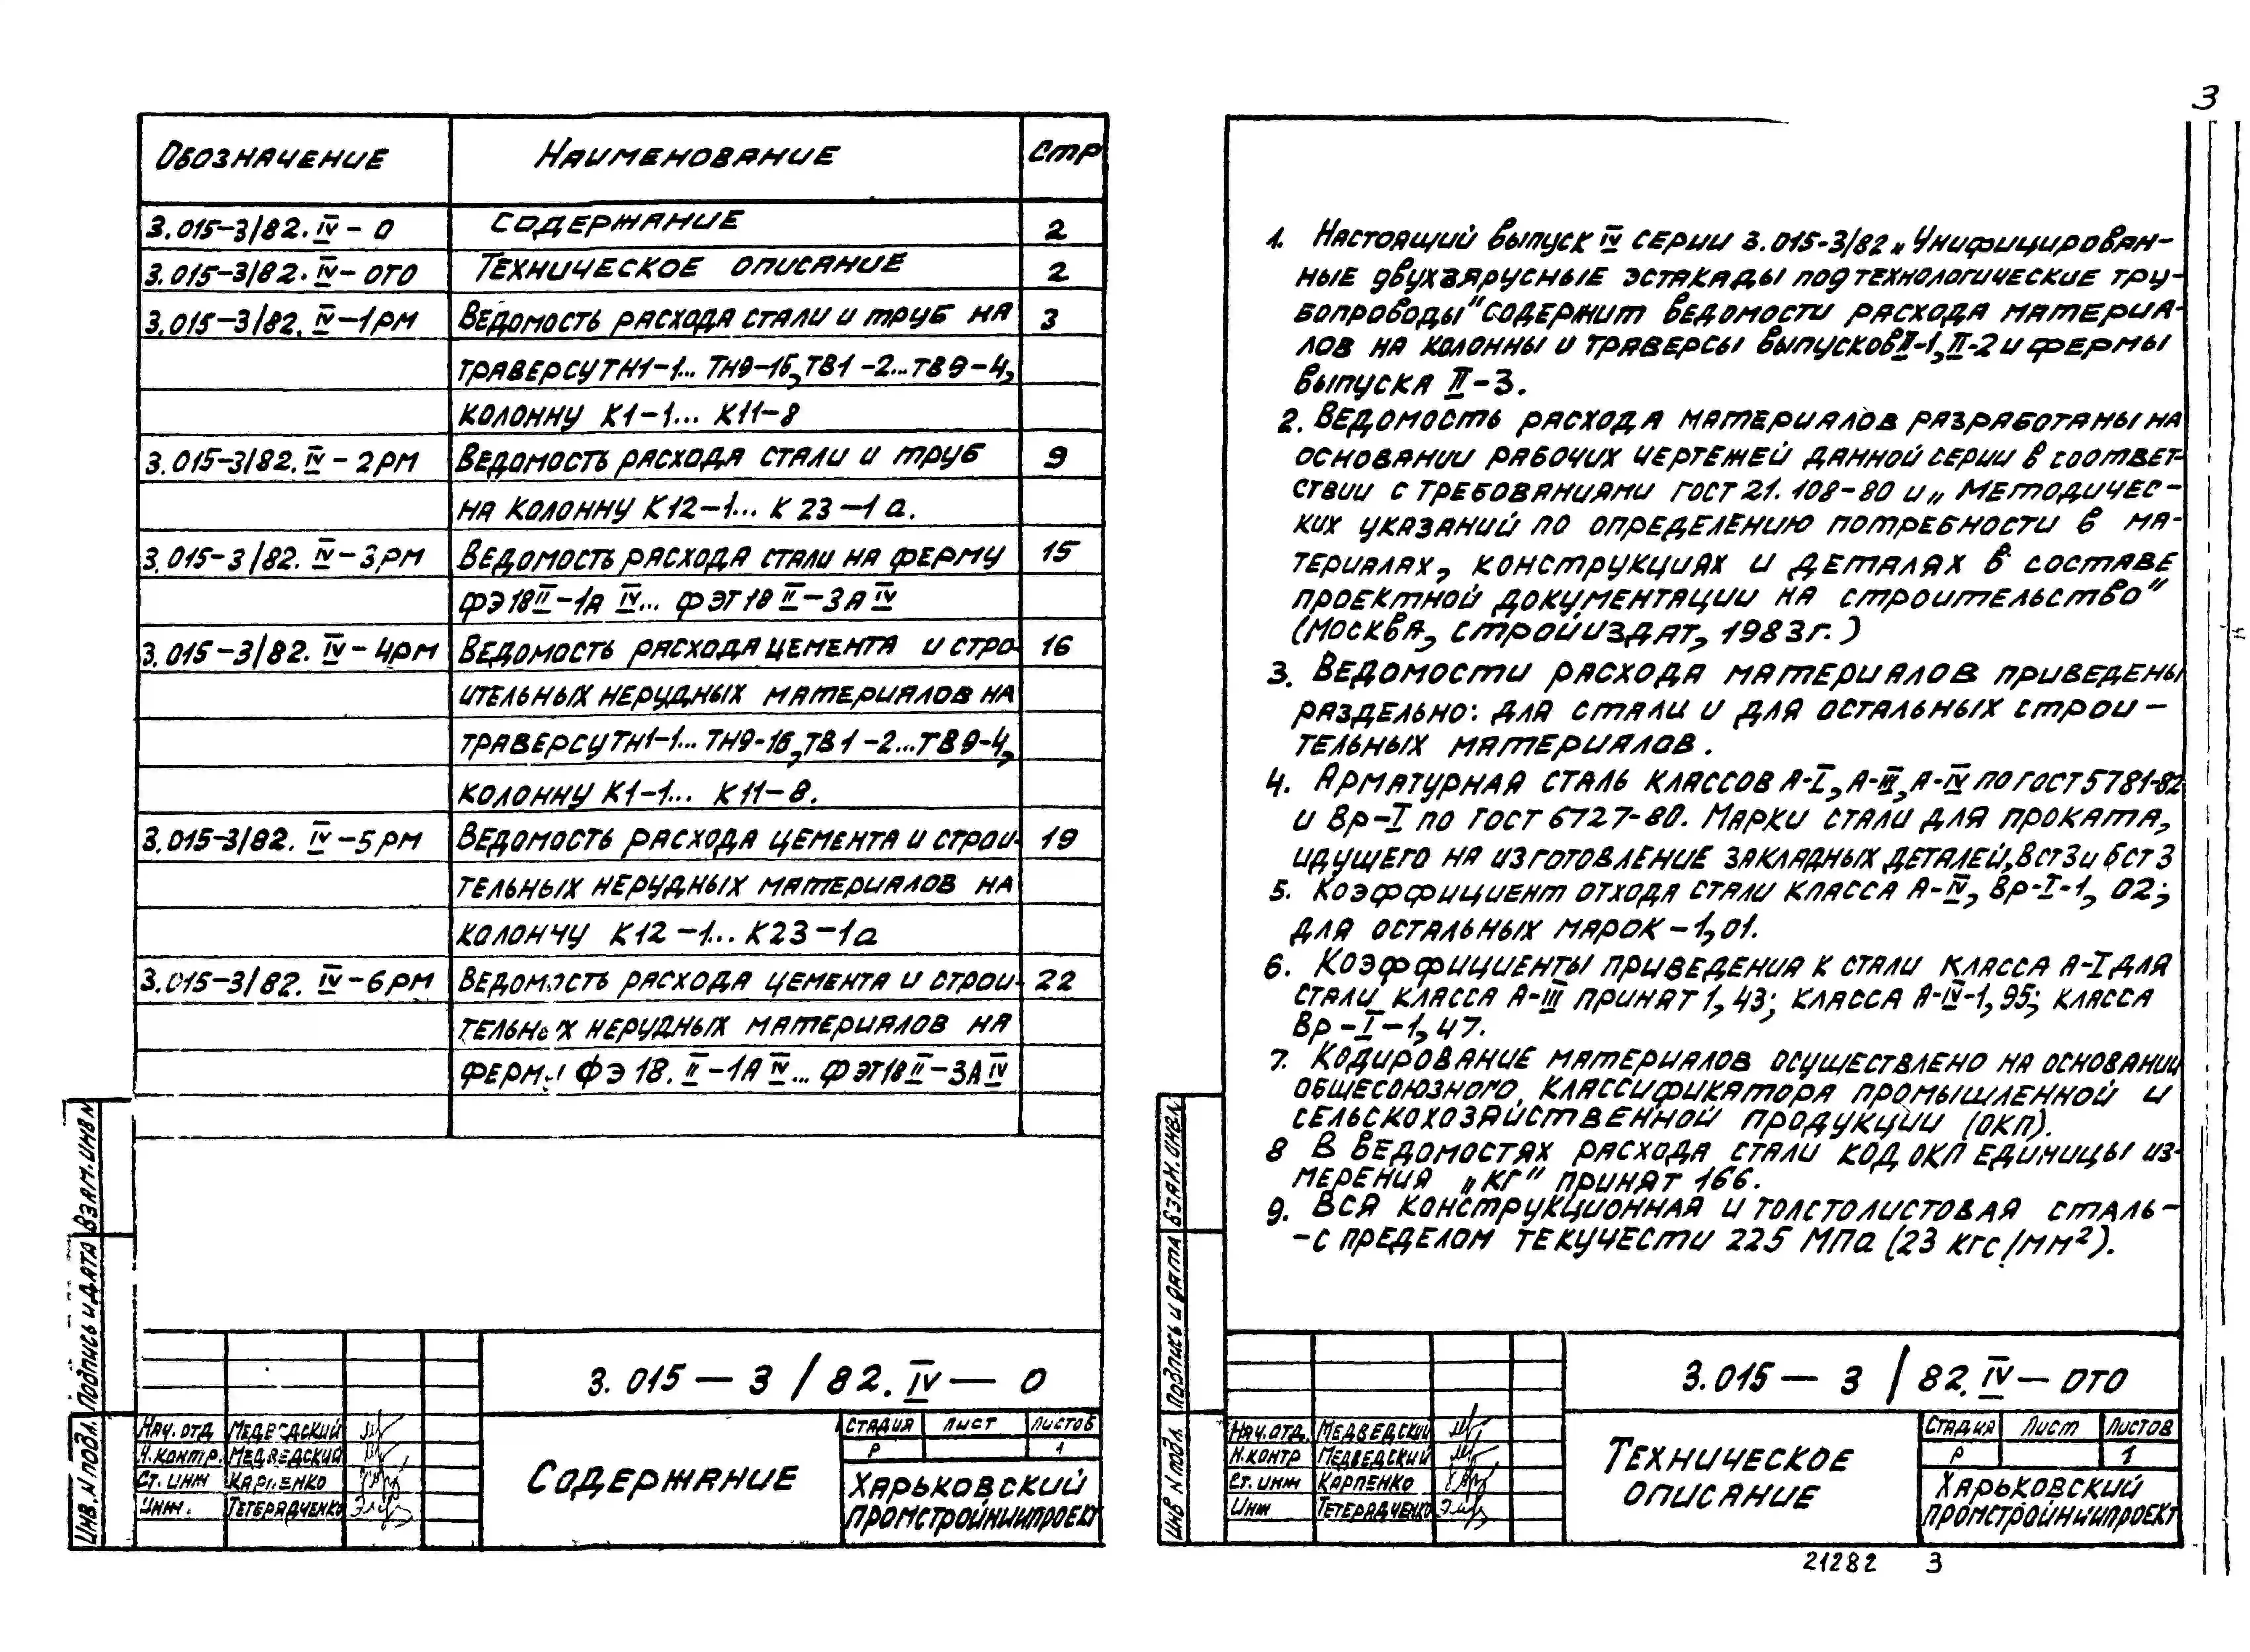 3
Обозначение Наименование Стр
3.015-3/82.IV-0 Содержание 2
3.015-3/82.IV-ОТО Техническое описание 2
3.015-3/82.IV-1РМ Ведомость расхода стали и труб на 3
траверсу ТН1-1... ТН9-16, ТВ1-2...ТВ9-4,
колонну К1-1... К11-8
3.015-3/82.IV-2РМ Ведомость расхода стали и труб 9
на колонну К12-1... К23-1а.
3.015-3/82.IV-3РМ Ведомость расхода стали на ферму 15
ФЭ18II-1АIV... ФЭТ18II-3АIV
3.015-3/82.IV-4РМ Ведомость расхода цемента и стро- 16
ительных нерудных материалов на
траверсу ТН1-1... ТН9-16, ТВ1-2...ТВ9-4,
колонну К1-1... К11-8.
3.015-3/82.IV-5РМ Ведомость расхода цемента и строи- 19
тельных нерудных материалов на
колонну К12-1... К23-1а
3.015-3/82.IV-6РМ Ведомость расхода цемента и строи- 22
тельных нерудных материалов на
ферму ФЭ18.II-1АIV... ФЭТ18II-3АIV
Взам.инв.N
Подпись и дата
Инв.N подл.
3.015-3/82.IV-0
Нач.отд Медведский
Н.контр. Медведский
Ст.инж Карпенко
Инж. Тетерядченко
Содержание
Стадия Лист Листов
Р 1
Харьковский
ПромстройНИИпроект
1. Настоящий выпуск IV серии 3.015-3/82 „Унифицирован-
ные двухъярусные эстакады под технологические тру-
бопроводы" содержит ведомости расхода материа-
лов на колонны и траверсы выпусков II-1, II-2 и фермы
выпуска II-3.
2. Ведомость расхода материалов разработаны на
основании рабочих чертежей данной серии в соответ-
ствии с требованиями ГОСТ 21.108-80 и „Методичес-
ких указаний по определению потребности в ма-
териалах, конструкциях и деталях в составе
проектной документации на строительство"
(Москва, Стройиздат, 1983г.)
3. Ведомости расхода материалов приведены
раздельно: для стали и для остальных строи-
тельных материалов.
4. Арматурная сталь классов А-I, А-III, А-IV по ГОСТ 5781-82
и Вр-I по ГОСТ 6727-80. Марки стали для проката,
идущего на изготовление закладных деталей, Вст3 и бст3
5. Коэффициент отхода стали класса А-IV, Вр-I-1,02;
для остальных марок-1,01.
6. Коэффициенты приведения к стали класса А-I для
стали класса А-III принят 1,43; класса А-IV-1,95; класса
Вр-I-1,47.
7. Кодирование материалов осуществлено на основании
общесоюзного классификатора промышленной и
сельскохозяйственной продукции (ОКП).
8 В ведомостях расхода стали код ОКП единицы из-
мерения „кг" принят 166.
9. Вся конструкционная и толстолистовая сталь-
-с пределом текучести 225 МПа (23 кгс/мм²).
Взам.инв.N
Подпись и дата
Инв N подл.
3.015-3/82.IV-ОТО
Нач.отд. Медведский
Н.контр Медведский
Ст.инж Карпенко
Инж Тетерядченко
Техническое
описание
Стадия Лист Листов
Р 1
Харьковский
ПромстройНИИпроект
21282 3